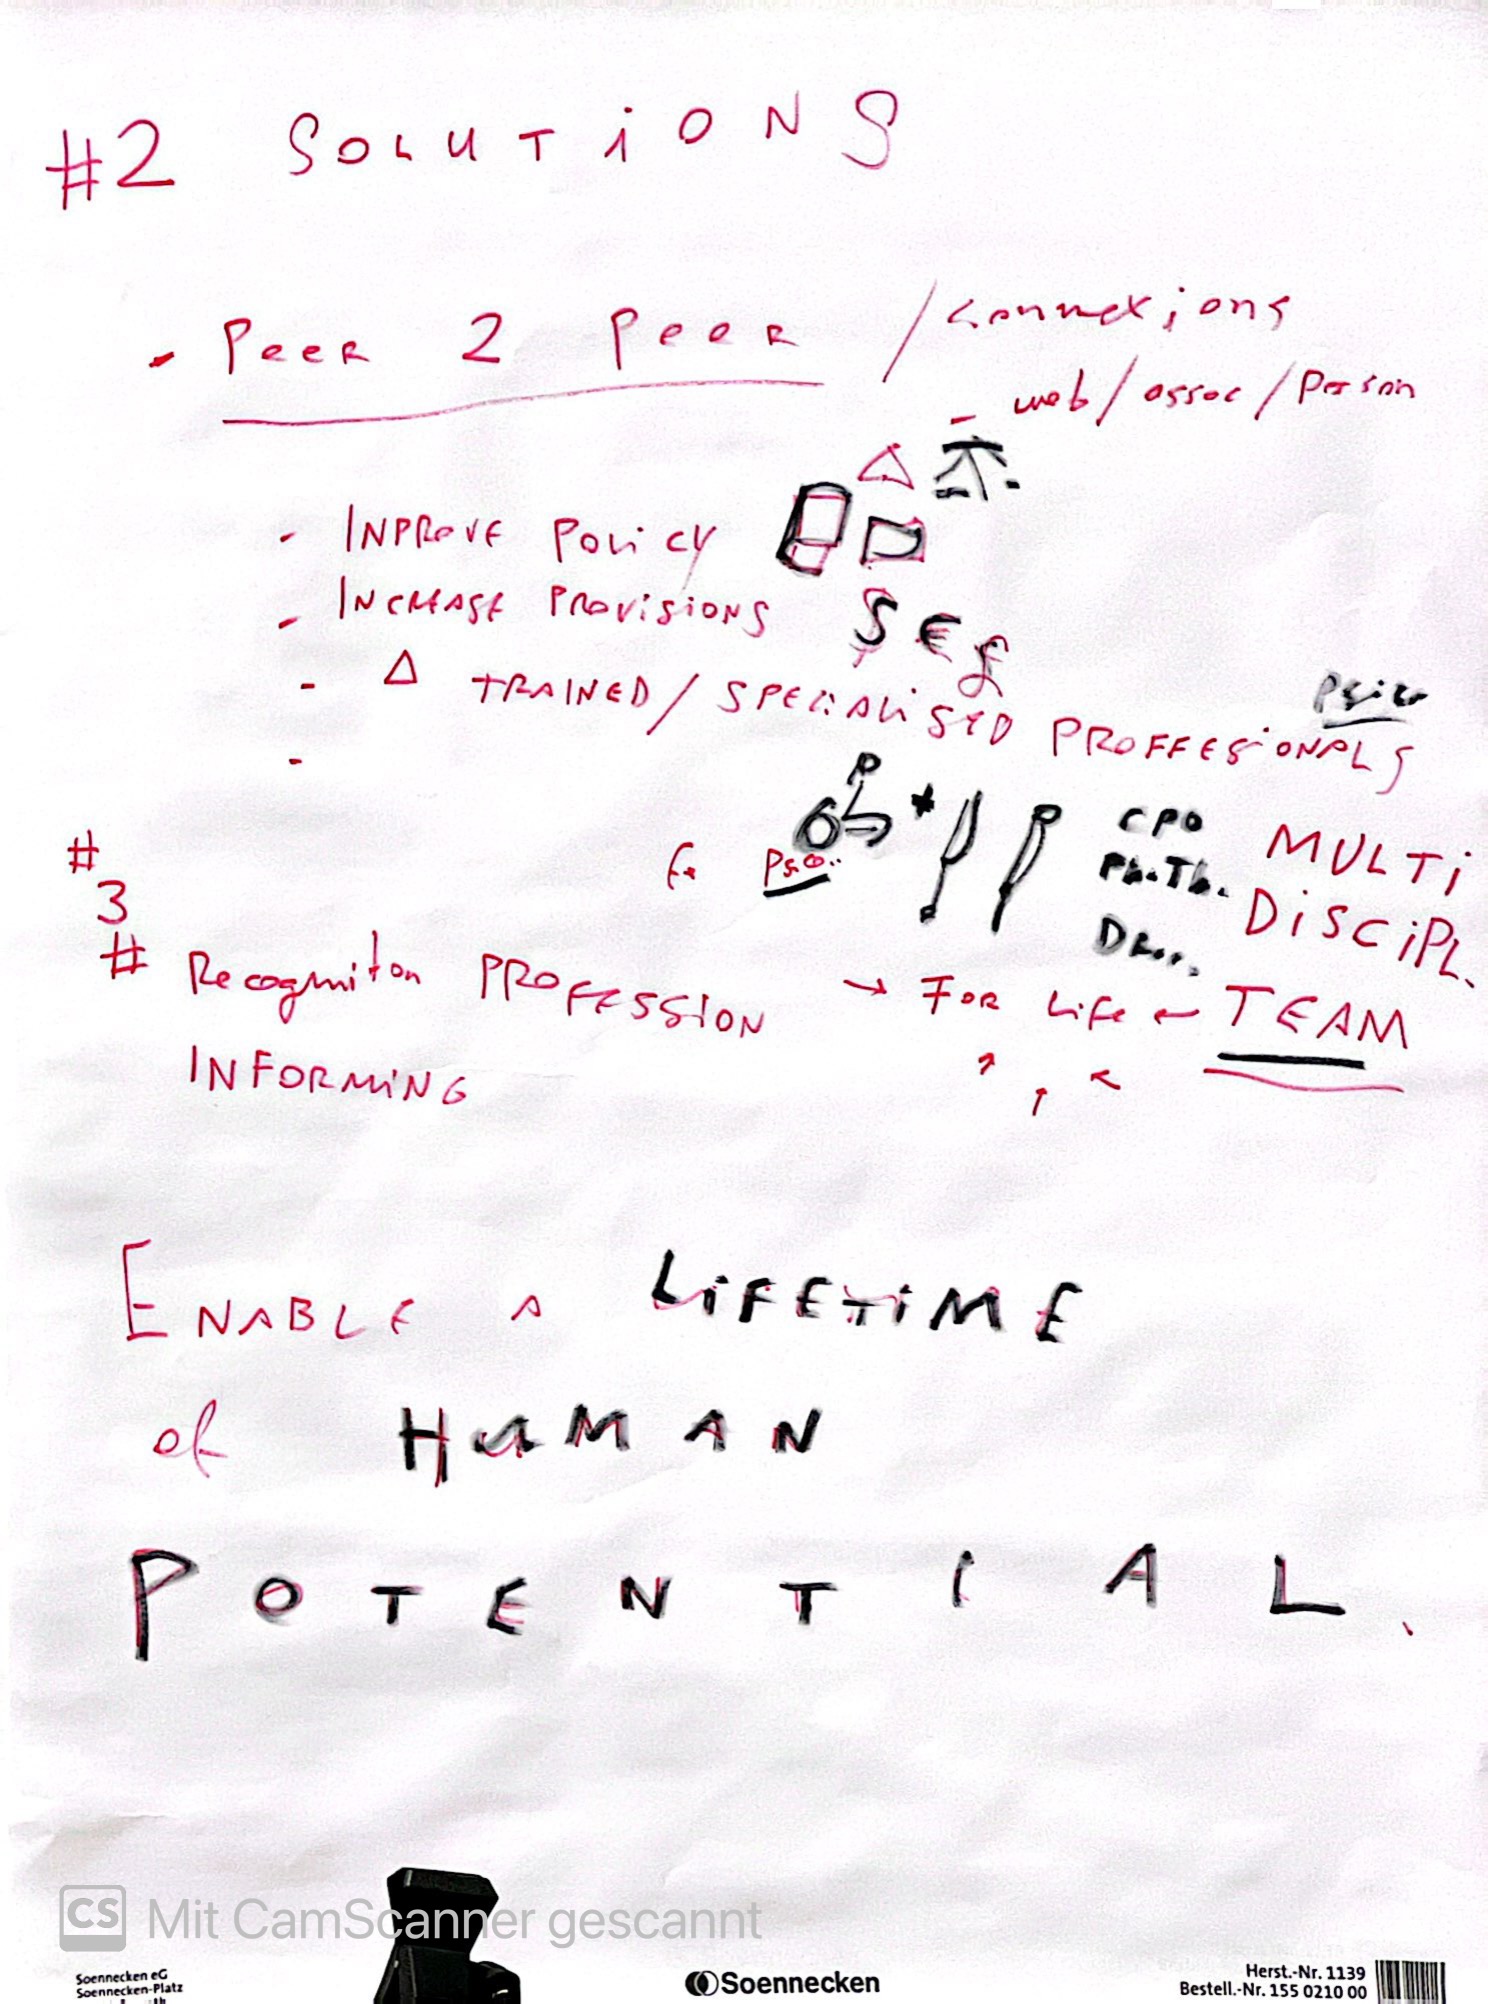 #2 SOLUTIONS
- Peer 2 Peer / connexions
- web / assoc / Person
- INPROVE POLICY
- INCREASE PROVISIONS $ € £
- Δ TRAINED / SPECIALISED PROFFESIONALS
-
CPO
Ph.Th.
DR...
MULTI
DISCIPL.
TEAM
#
3
# Recogniton PROFESSION → FOR Life ←
INFORMING
ENABLE A LIFETIME
of HUMAN
POTENTIAL.
CS Mit CamScanner gescannt
Soennecken eG
Soennecken-Platz
Soennecken
Herst.-Nr. 1139
Bestell.-Nr. 155 0210 00